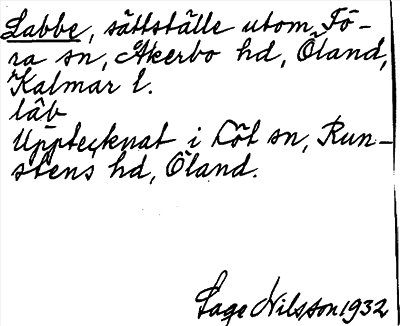 Labbe, sättställe utom Fö-
ra sn, Åkerbo hd, Öland,
Kalmar l.
låb
Upptecknat i Löt sn, Run-
stens hd, Öland.
Sage Nilsson 1932